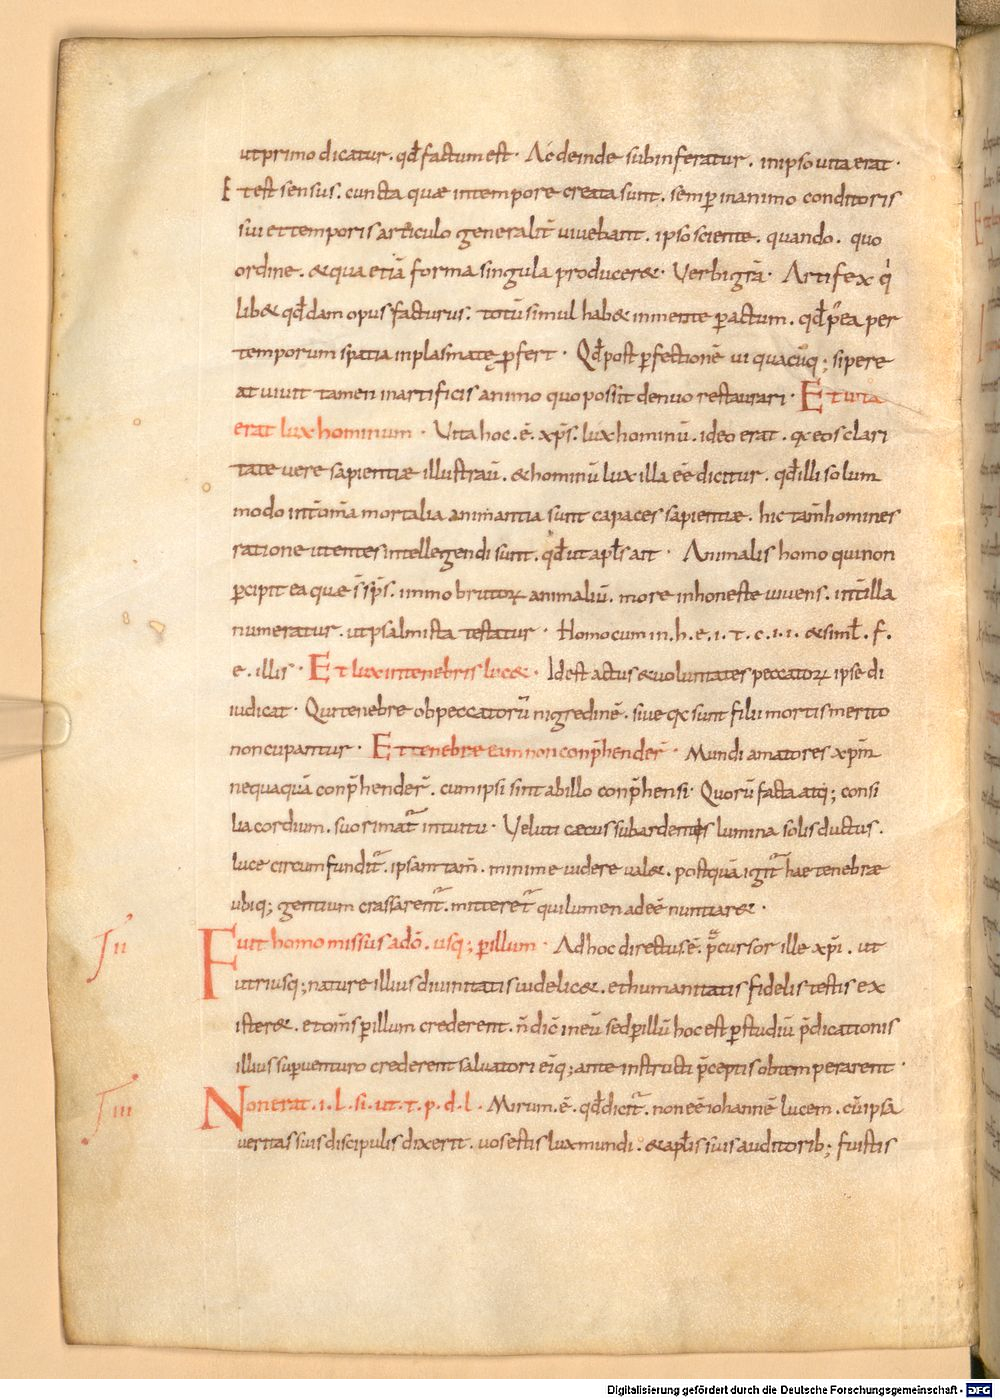 ut primo dicatur. qđ factum est. Ac deinde subinferatur. in ipso uita erat.
Et est sensus. cuncta quæ in tempore creata sunt. semp̄ in animo conditoris
sui et temporis articulo generalit̄ uiuebant. ipso sciente. quando. quo
ordine. & qua etiā forma singula producer&. Verbi grā. Artifex q̇
lib& qđdam opus facturus. totū simul hab& in mente p̄actum. qđ p̄ ea per
temporum spatia in plasmatę ꝓfert. Qđ post ꝑfectionē ui quacūq; si pere
at uiuit tamen in artificis animo quo possit denuo restaurari. Et uita
erat lux hominum. Vita hoc .ē. xp̄s. lux hominū. ideo erat. qc eos clari
tate uere sapientiæ illustrau̅. & hominū lux illa eē dicitur. qđ illi solum
modo int̄ om̄a mortalia animantia sunt capaces sapientiæ. hic tam̄ homines
ratione utentes intellegendi sunt. qđ ut apl̄s ait. Animalis homo qui non
ꝑcipit ea quæ s̄ sp̄s. immo brutoꝝ animaliū. more inhoneste uiuens. int̄ illa
numeratur. ut psalmista testatur. Homo cum in.h.e.i.t.c.i.i. & simł. f.
e. illis. Et lux in tenebris luc&. Id est actus & uoluntates peccatoꝝ ipse di
iudicat. Qui tenebre ob peccatorū nigredinē. siue qc sunt filii mortis merito
noncupantur. Et tenebræ eam non conp̄hender̄. Mundi amatores xp̄m
nequaquā conp̄hender̄. cum ipsi sint ab illo conp̄hensi. Quorū facta atq; consi
lia cordium. suo rimat᷑ intuitu. Veluti cæcus sub ardentis lumina solis ductus.
luce circumfundit᷑. ipsam tam̄. minime uidere ual&. postquā igit᷑ hae tenebræ
ubiq; gentium crassarent᷑. mitteret᷑ qui lumen adeē nuntiar&.
Iii
Fuit homo missus a dō. usq; ꝑ illum. Ad hoc directus .ē. p̄cursor ille xp̄i. ut
utriusq; nature illius diuinitatis uidelic&. et humanitatis fidelis testis ex
ister&. et om̄s ꝑ illum crederent. n̄ dic̄ in eū sed ꝑ illū hoc est ꝑ studiū p̄dicationis
illius sup̄uenturo crederent saluatori eiq; ante instructi p̄ceptis obtemperarent.
Iiii
Non erat. i. L. si. ut. t. p. d. l. Mirum .ē. qđ dicit᷑. non eē iohannē lucem. cū ipsa
ueritas suis discipulis dixerit. uos estis lux mundi. & apl̄is suis auditorib; fuistis
Digitalisierung gefördert durch die Deutsche Forschungsgemeinschaft - DFG